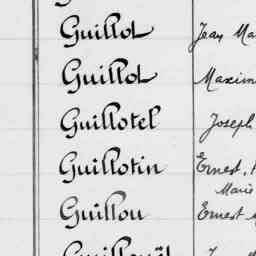 Guillot Jean
Guillot
Guillotel Joseph
Guillotin Ernest,
Marie
Guillou Ernest